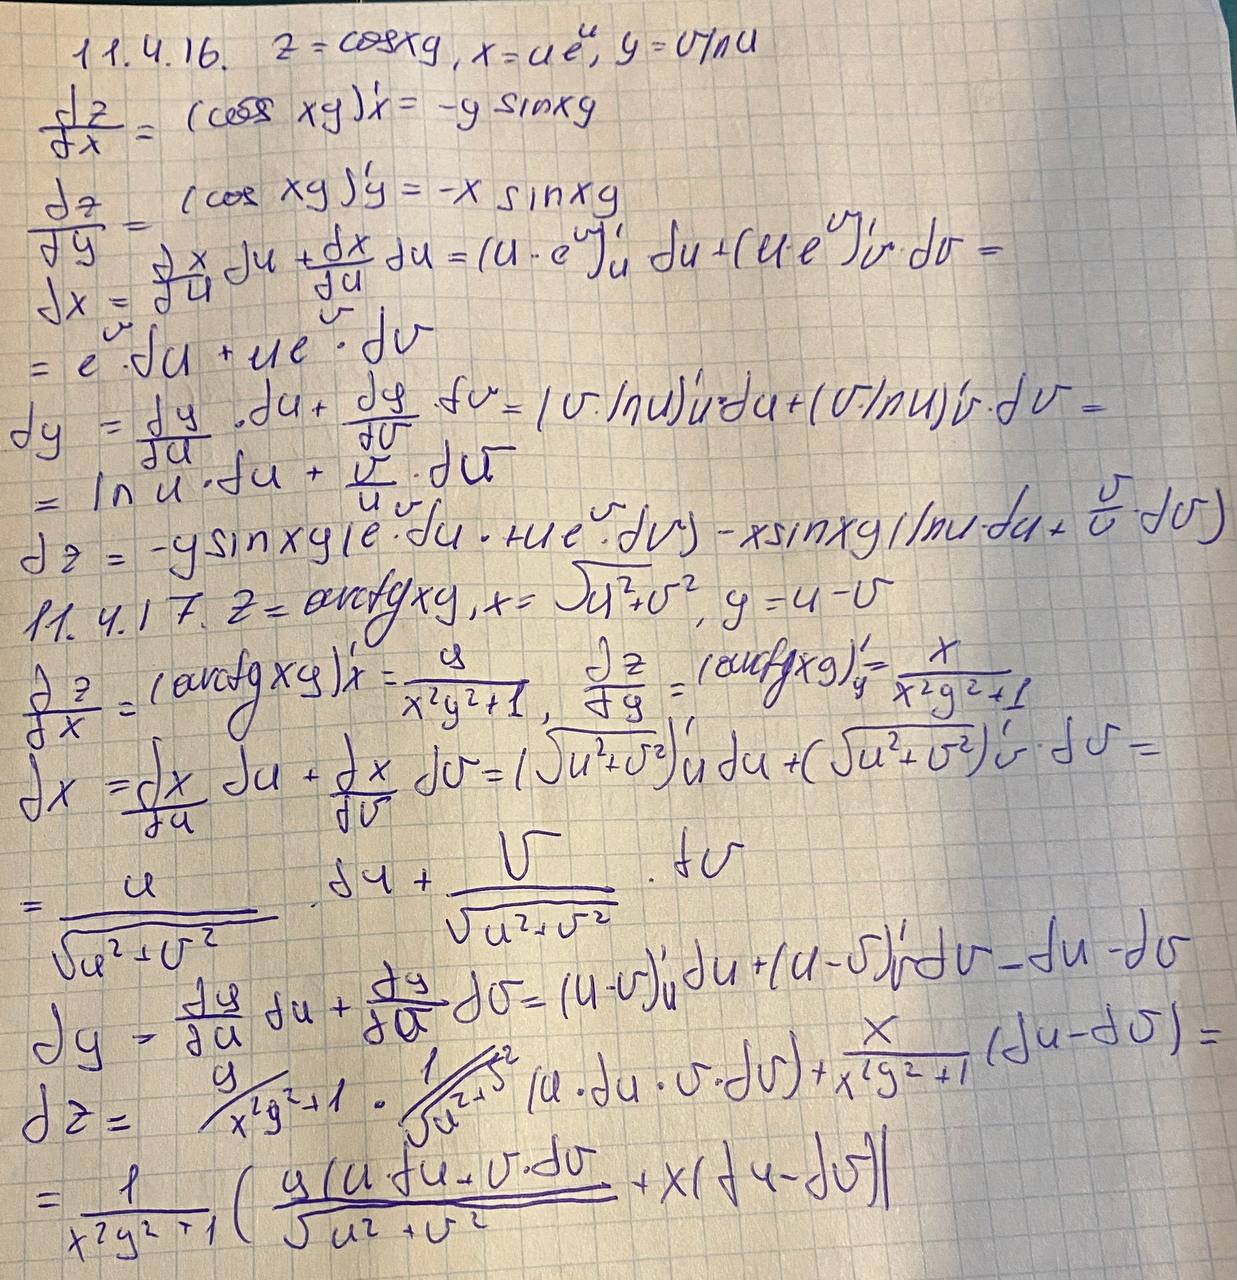 11.4.16. z = cosxy, x = ue^u, y = v lnu
∂z/∂x = (cos xy)'x = -y sinxy
∂z/∂y = (cos xy)'y = -x sinxy
dx = ∂x/∂u du + ∂x/∂u du = (u · e^v)'u du + (u·e^v)'v · dv =
= e^v · du + ue^v · dv
dy = ∂y/∂u · du + ∂y/∂v · dv = (v · lnu)'u · du + (v/lnu)'v · dv =
= ln u · du + v/u · dv
dz = -y sinxy(e^v · du · + ue^v · dv) - x sinxy(lnu · du + v/v · dv)
11.4.17. z = arctgxy, x = √(u²+v²), y = u - v
∂z/∂x = (arctgxy)'x = y/(x²y²+1), ∂z/∂y = (arctgxy)'y = x/(x²y²+1)
dx = ∂x/∂u du + ∂x/∂v dv = (√(u²+v²))'u du + (√(u²+v²))'v · dv =
= u/√(u²+v²) · du + v/√(u²+v²) · dv
dy = ∂y/∂u du + ∂y/∂v dv = (u-v)'u du + (u-v)'v dv = du - dv
dz = y/(x²y²+1) · 1/√(u²+v²) (u · du · v · dv) + x/(x²y²+1) (du - dv) =
= 1/(x²y²+1) (y(u · du + v · dv/√(u²+v²) + x(du - dv))